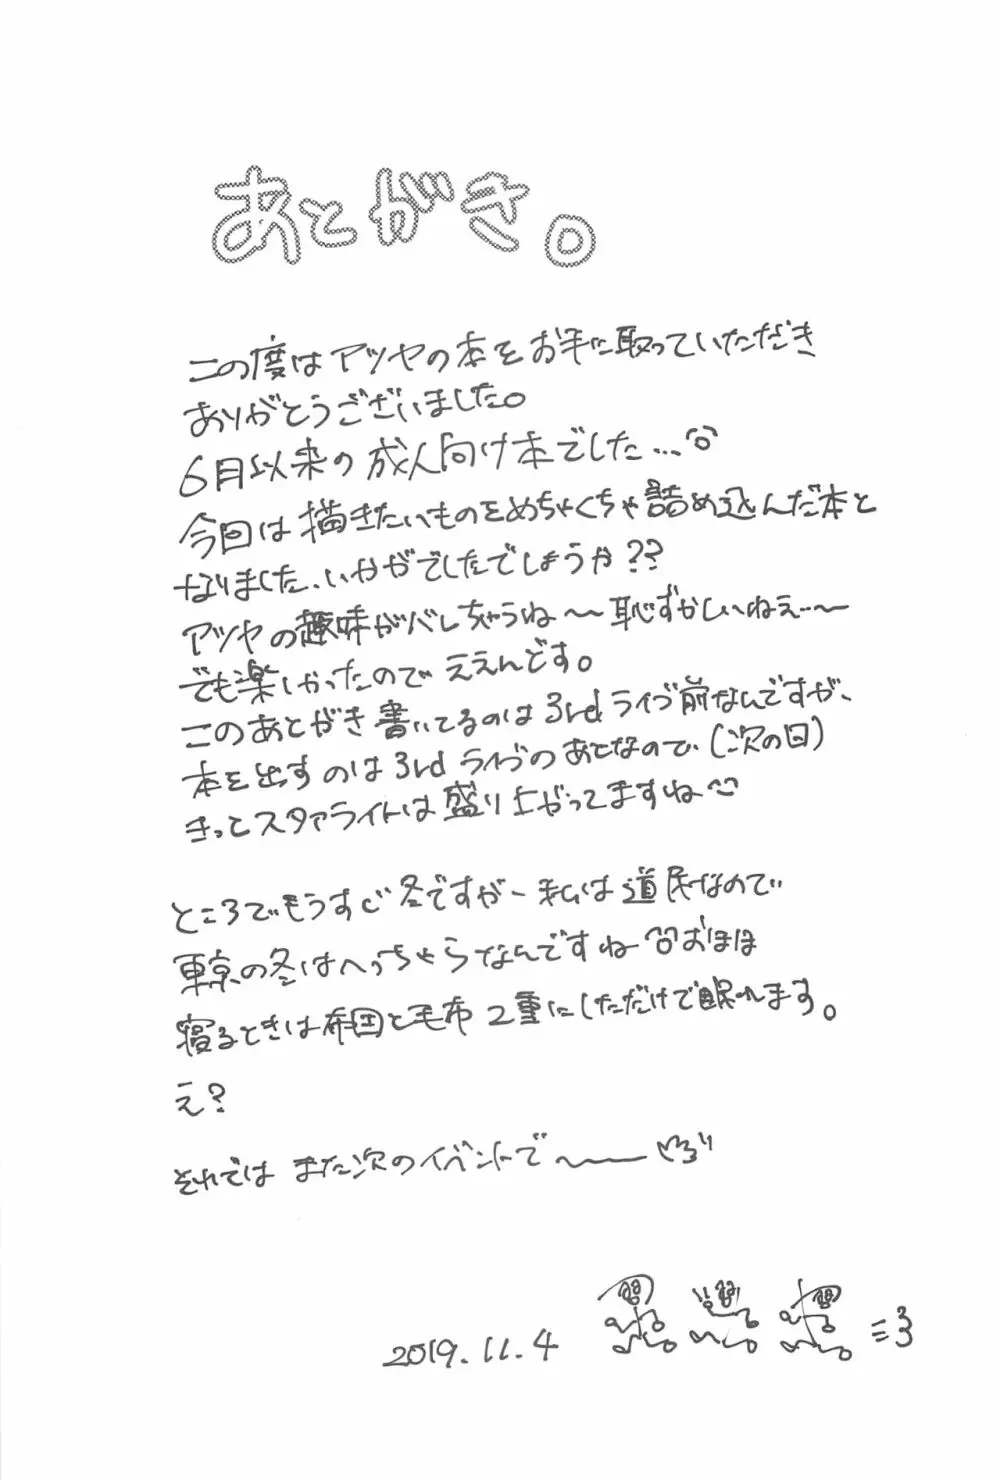 あとがき。
この度はアツヤの本をお手に取っていただき
ありがとうございました。
6月以来の成人向け本でした…
今回は描きたいものをめちゃくちゃ詰め込んだ本と
なりました、いかがでしたでしょうか??
アツヤの趣味がバレちゃうね〜恥ずかしいねえ…〜
でも楽しかったのでええんです。
このあとがき書いてるのは3rdライブ前なんですが、
本を出すのは3rdライブのあとなので、(次の日)
きっとスタァライトは盛り上がってますね
ところでもうすぐ冬ですがー私は道民なので
東京の冬はへっちゃらなんですねおほほ
寝るときは布団と毛布2重にしただけで眠れます。
え?
それでは また次のイベントで〜
2019.11.4